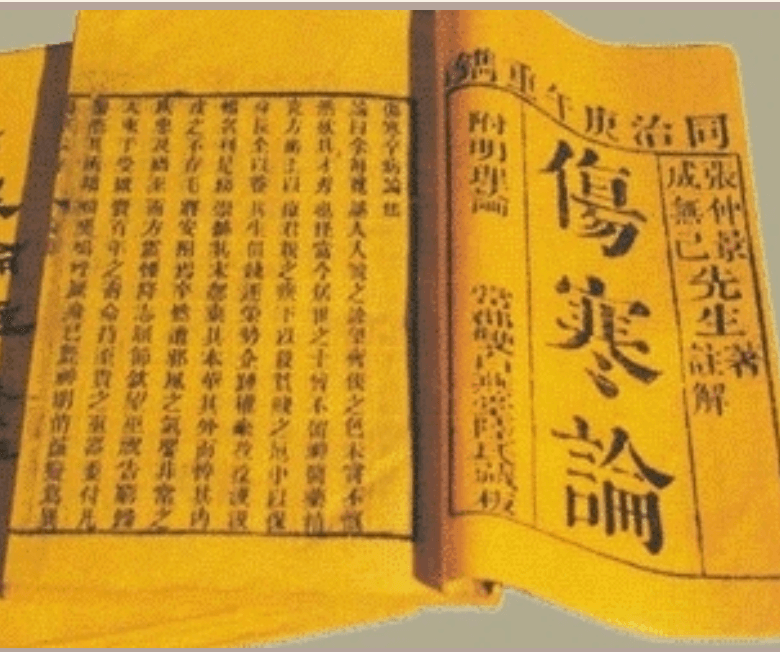 同治庚午重鐫
張仲景先生著
成無己先生註解
傷寒論
附明理論
常郡雙白燕堂陸氏藏板
傷寒卒病論集
論曰余每覽越人入虢之診望齊侯之色未嘗不慨
然歎其才秀也怪當今居世之士曾不留神醫藥精
究方術上以療君親之疾下以救貧賤之厄中以保
身長全以養其生但競逐榮勢企踵權豪孜孜汲汲
惟名利是務崇飾其末忽棄其本華其外而悴其內
皮之不存毛將安附焉卒然遭邪風之氣嬰非常之
疾患及禍至而方震慄降志屈節欽望巫祝告窮歸
天束手受敗賚百年之壽命持至貴之重器委付凡
醫恣其所措咄嗟嗚呼厥身已斃神明消滅變為異